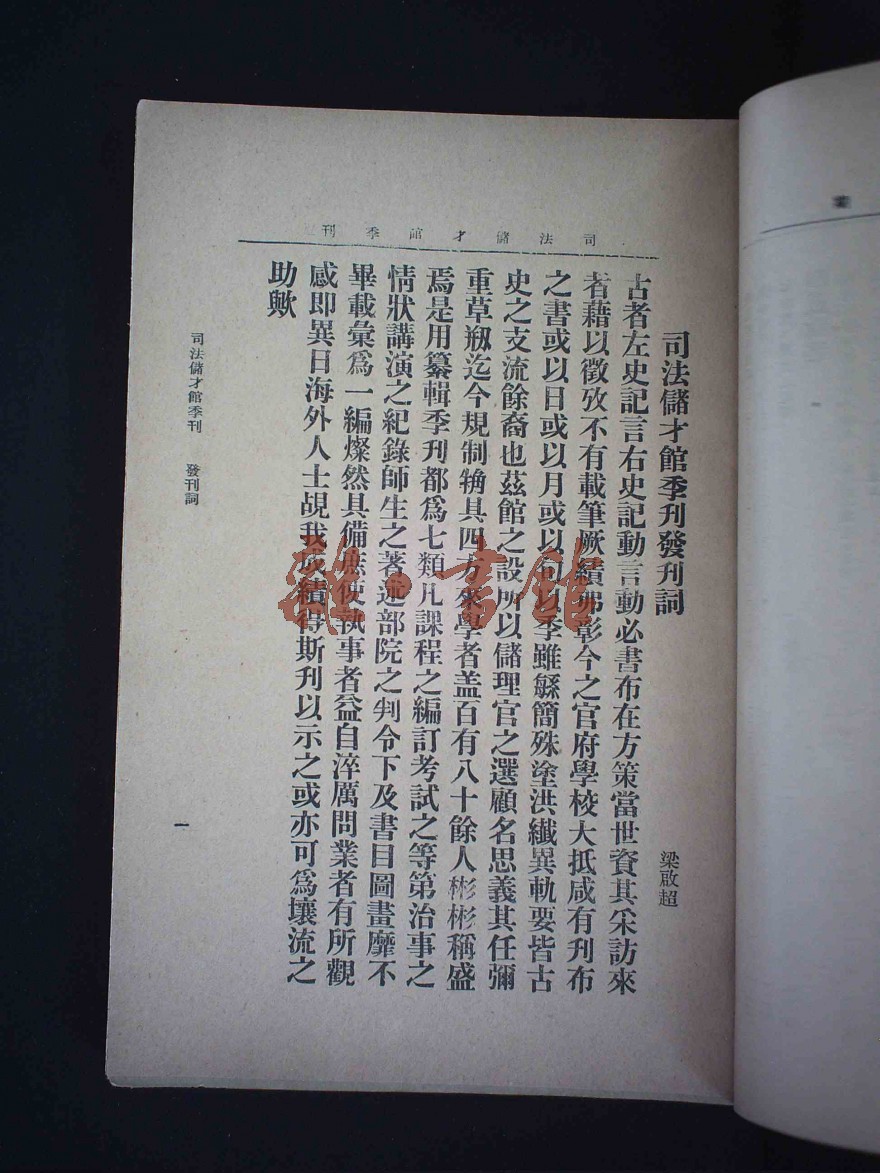 司法儲才館季刊
司法儲才館季刊發刊詞
梁啟超
古者左史記言右史記動言動必書布在方策當世資其采訪來
者藉以徵攷不有載筆厥績弗彰今之官府學校大抵咸有刊布
之書或以日或以月或以旬以季雖繇簡殊塗洪纖異軌要皆古
史之支流餘裔也茲館之設所以儲理官之選顧名思義其任彌
重草剏迄今規制觕具四方來學者盖百有八十餘人彬彬稱盛
焉是用纂輯季刊都爲七類凡課程之編訂考試之等第治事之
情狀講演之紀錄師生之著述部院之判令下及書目圖畫靡不
畢載彙爲一編燦然具備庶使執事者益自淬厲問業者有所觀
感即異日海外人士覘我成績得斯刊以示之或亦可爲壤流之
助歟
司法儲才館季刊 發刊詞
一
雜·書館